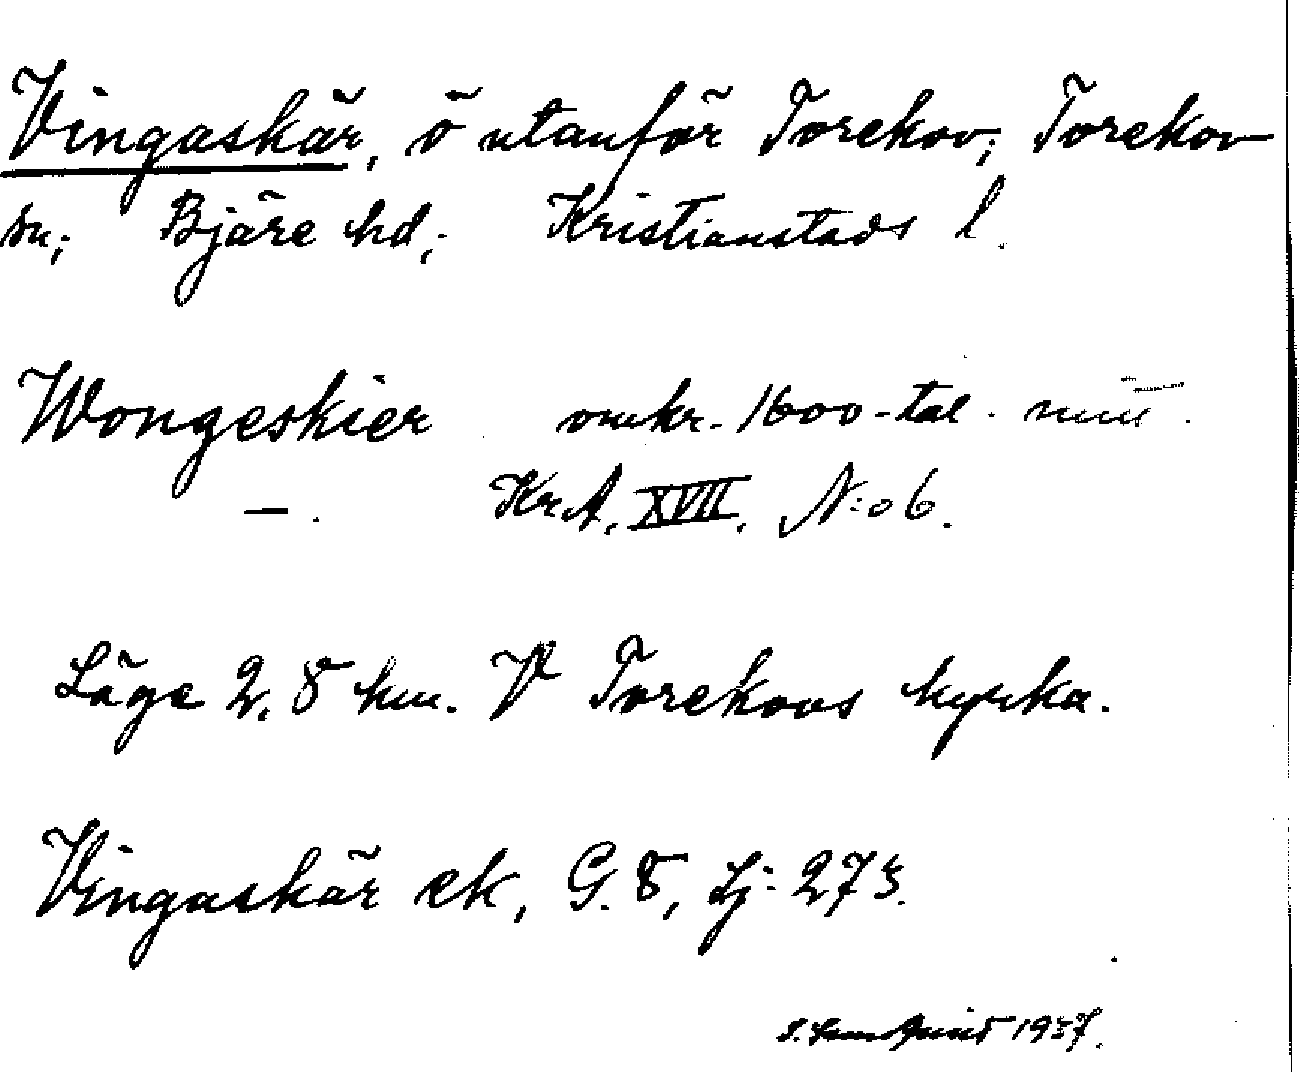 Vingaskär, ö utanför Torekov; Torekov
sn; Bjäre hd; Kristianstads l.
Wongeskier omkr. 1600-tal.
—. Kr.A. XVII. N:o 6.
Läge 2,8 km. V Torekovs kyrka.
Vingaskär ek, G. 8, Lj: 273.
1937.